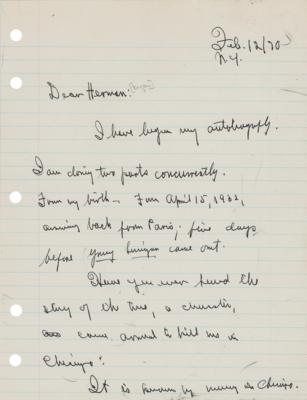 Feb. 12/70
N.Y.
Dear Herman:
I have begun my autobiography.
I am doing two parts concurrently.
From my birth – From April 15, 1932,
arriving back from Paris, five days
before young Lonigan came out.
Have you ever heard the
story of the time, a
came around to kill me in
Chicago?
It is known by many in Chicago.